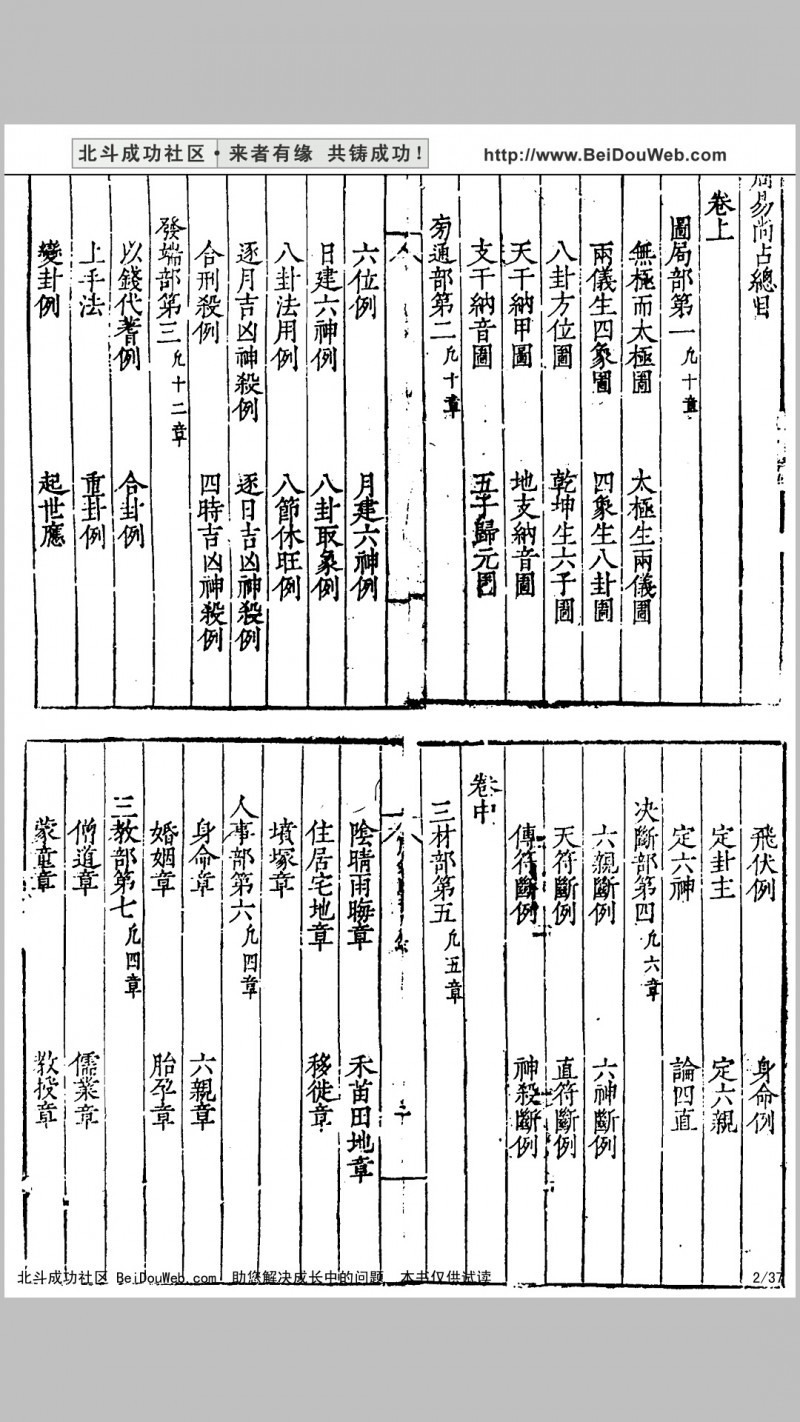 北斗成功社区·来者有缘 共铸成功！ http://www.BeiDouWeb.com
周易尚占總目
卷上
圖局部第一 凢十章
無極而太極圖 太極生兩儀圖
兩儀生四象圖 四象生八卦圖
八卦方位圖 乾坤生六子圖
天干納甲圖 地支納音圖
支干納音圖 五子歸元圖
旁通部第二 凢十章
六位例 月建六神例
日建六神例 八卦取象例
八卦法用例 八節休旺例
逐月吉凶神殺例 逐日吉凶神殺例
合刑殺例 四時吉凶神殺例
發端部第三 凢十二章
以錢代蓍例 合卦例
上手法 重卦例
變卦例 起世應
飛伏例 身命例
定卦主 定六親
定六神 論四直
决斷部第四 凢六章
六親斷例 六神斷例
天符斷例 直符斷例
傳符斷例 神殺斷例
卷中
三材部第五 凢五章
陰晴雨晦章 禾苗田地章
住居宅地章 移徙章
墳塚章
人事部第六 凢四章
身命章 六親章
婚姻章 胎孕章
三教部第七 凢四章
僧道章 儒業章
蒙童章 教授章
北斗成功社区 BeiDouWeb.com 助您解决成长中的问题 本书仅供试读 2/37